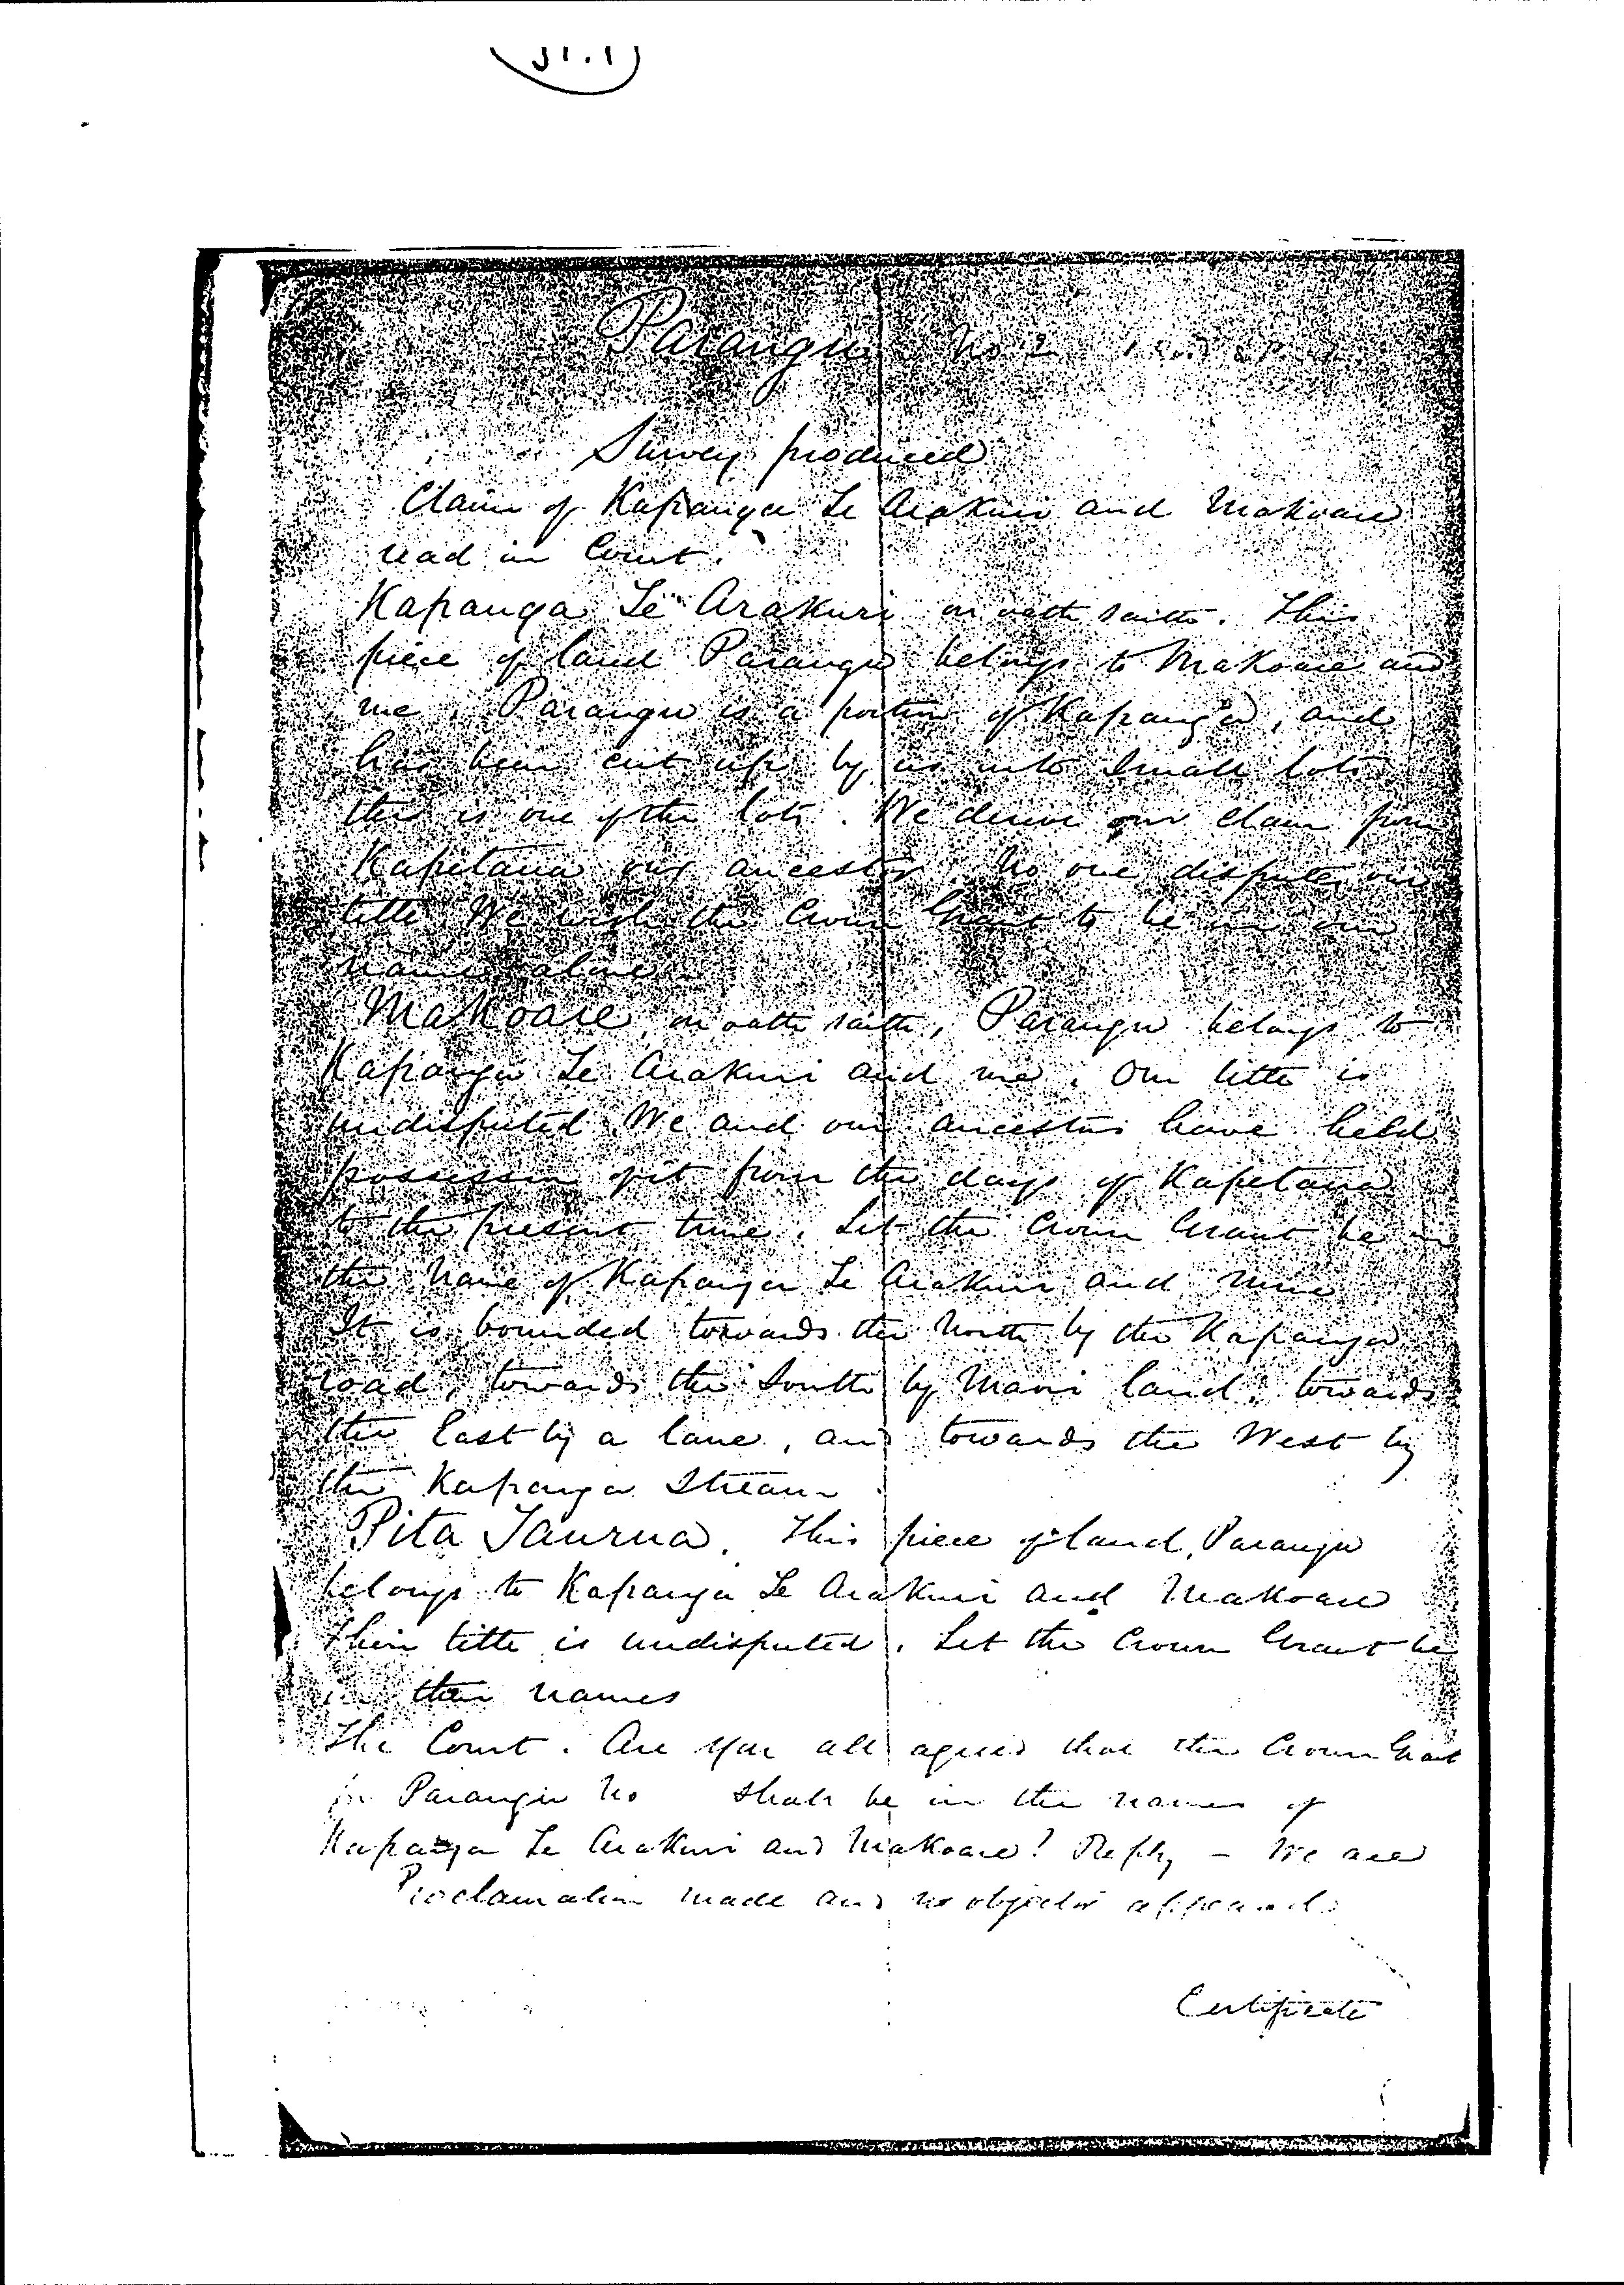 Parangu No 2
Survey produced
Claim of Kapanga Te Arakuri and Makoare
read in Court.
Kapanga Te Arakuri on oath saith. This
piece of land Parangu belongs to Makoare and
me. Parangu is a portion of Kapanga, and
has been cut up by us into small lots
this is one of the lots. We derive our claim from
Kapetana our ancestor. No one disputes our
title We wish the Crown Grant to be in our
names alone
Makoare, on oath saith, Parangu belongs to
Kapanga Te Arakuri and me. Our title is
undisputed We and our ancestors have held
possession of it from the days of Kapetana
to the present time. Let the Crown Grant be in
the name of Kapanga Te Arakuri and mine
It is bounded towards the North by the Kapanga
road, towards the South by Maori land, towards
the East by a lane, and towards the West by
the Kapanga Stream
Pita Taurua. This piece of land, Parangu
belongs to Kapanga Te Arakuri and Makoare
Their title is undisputed. Let the Crown Grant be
in their names
The Court. Are you all agreed that the Crown Grant
for Parangu No shall be in the names of
Kapanga Te Arakuri and Makoare? Reply - We are
Proclamation made and no objector appeared.
Certificate